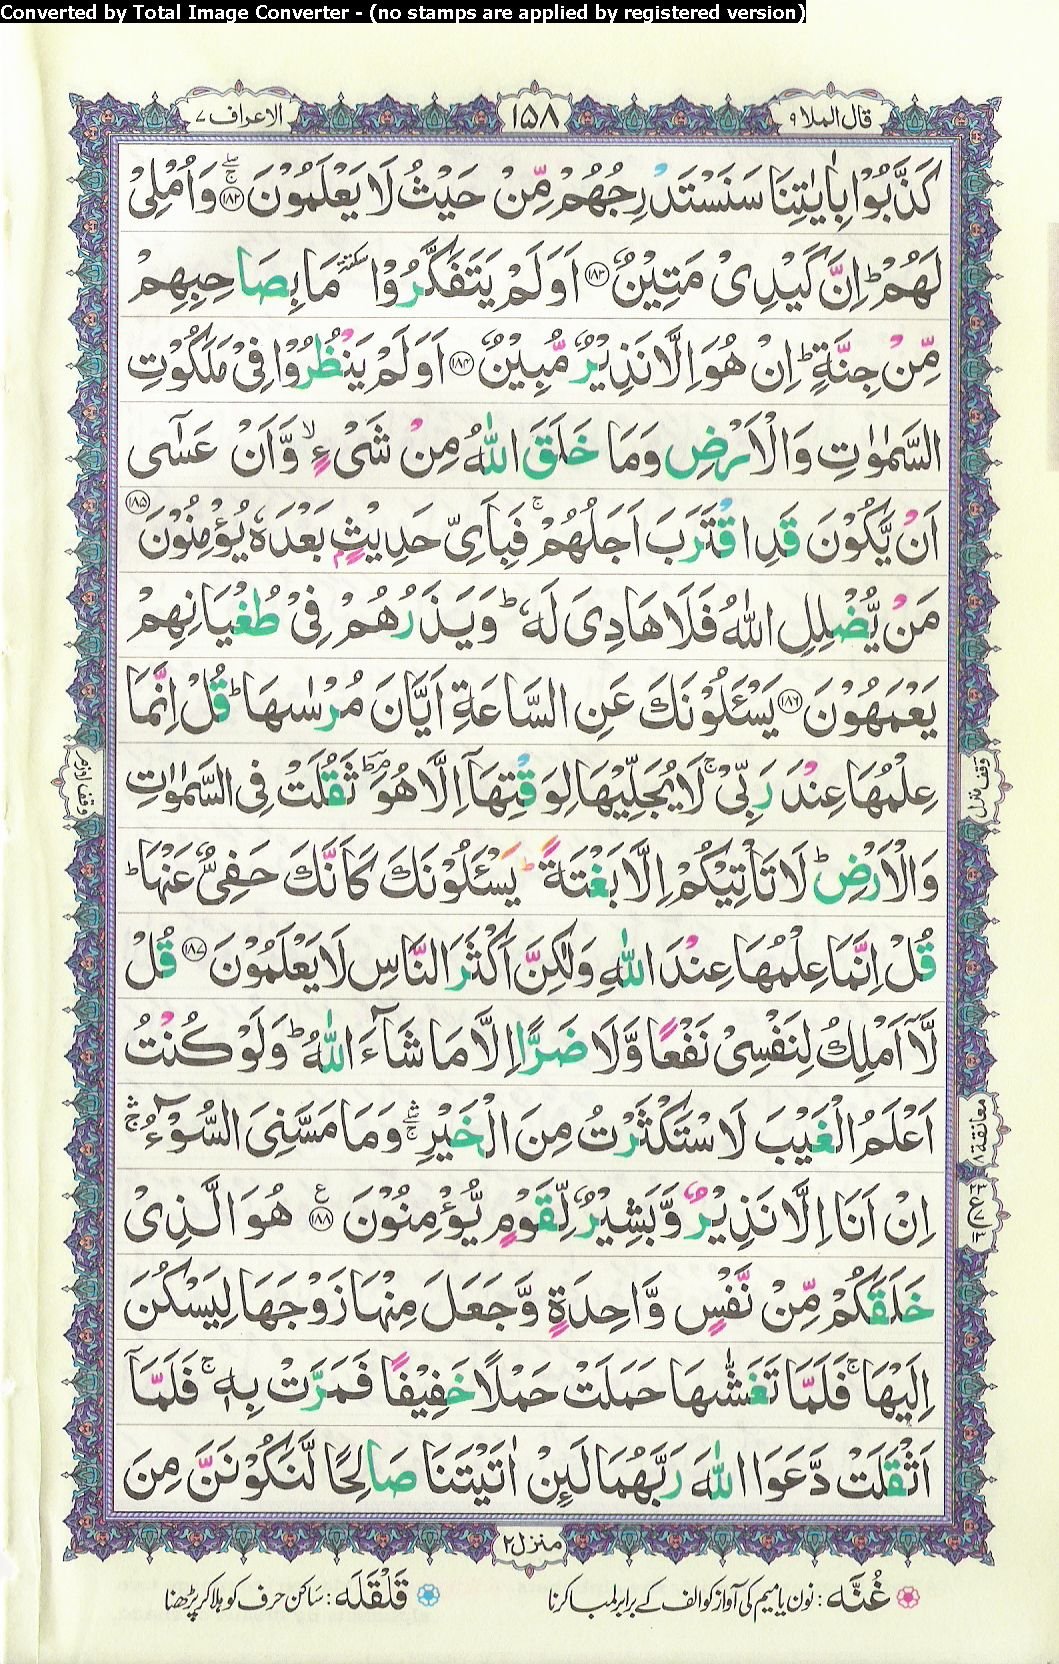 Converted by Total Image Converter - (no stamps are applied by registered version)
قال الملا ٩
١٥٨
الاعراف ٧
كَذَّبُوْا بِاٰيٰتِنَا سَنَسْتَدْرِجُهُمْ مِّنْ حَيْثُ لَا يَعْلَمُوْنَ ۚۖ ﴿١٨٢﴾ وَاُمْلِيْ
لَهُمْ ؕ اِنَّ كَيْدِيْ مَتِيْنٌ ﴿١٨٣﴾ اَوَلَمْ يَتَفَكَّرُوْا ٚ مَا بِصَاحِبِهِمْ
مِّنْ جِنَّةٍ ؕ اِنْ هُوَ اِلَّا نَذِيْرٌ مُّبِيْنٌ ﴿١٨٤﴾ اَوَلَمْ يَنْظُرُوْا فِيْ مَلَكُوْتِ
السَّمٰوٰتِ وَالْاَرْضِ وَمَا خَلَقَ اللّٰهُ مِنْ شَيْءٍ ۙ وَّاَنْ عَسٰٓى
اَنْ يَّكُوْنَ قَدِ اقْتَرَبَ اَجَلُهُمْ ۚ فَبِاَيِّ حَدِيْثٍۢ بَعْدَهٗ يُؤْمِنُوْنَ ﴿١٨٥﴾
مَنْ يُّضْلِلِ اللّٰهُ فَلَا هَادِيَ لَهٗ ؕ وَيَذَرُهُمْ فِيْ طُغْيَانِهِمْ
يَعْمَهُوْنَ ﴿١٨٦﴾ يَسْـَٔلُوْنَكَ عَنِ السَّاعَةِ اَيَّانَ مُرْسٰىهَا ؕ قُلْ اِنَّمَا
عِلْمُهَا عِنْدَ رَبِّيْ ۚ لَا يُجَلِّيْهَا لِوَقْتِهَآ اِلَّا هُوَ ؔؕ ثَقُلَتْ فِي السَّمٰوٰتِ
وَالْاَرْضِ ؕ لَا تَاْتِيْكُمْ اِلَّا بَغْتَةً ؕ يَسْـَٔلُوْنَكَ كَاَنَّكَ حَفِيٌّ عَنْهَا ؕ
قُلْ اِنَّمَا عِلْمُهَا عِنْدَ اللّٰهِ وَلٰكِنَّ اَكْثَرَ النَّاسِ لَا يَعْلَمُوْنَ ﴿١٨٧﴾ قُلْ
لَّآ اَمْلِكُ لِنَفْسِيْ نَفْعًا وَّلَا ضَرًّا اِلَّا مَا شَآءَ اللّٰهُ ؕ وَلَوْ كُنْتُ
اَعْلَمُ الْغَيْبَ لَاسْتَكْثَرْتُ مِنَ الْخَيْرِ ۛۚ وَمَا مَسَّنِيَ السُّوْٓءُ ۛۚ
اِنْ اَنَا اِلَّا نَذِيْرٌ وَّبَشِيْرٌ لِّقَوْمٍ يُّؤْمِنُوْنَ ﴿١٨٨﴾ ع هُوَ الَّذِيْ
خَلَقَكُمْ مِّنْ نَّفْسٍ وَّاحِدَةٍ وَّجَعَلَ مِنْهَا زَوْجَهَا لِيَسْكُنَ
اِلَيْهَا ۚ فَلَمَّا تَغَشّٰىهَا حَمَلَتْ حَمْلًا خَفِيْفًا فَمَرَّتْ بِهٖ ۚ فَلَمَّآ
اَثْقَلَتْ دَّعَوَا اللّٰهَ رَبَّهُمَا لَىِٕنْ اٰتَيْتَنَا صَالِحًا لَّنَكُوْنَنَّ مِنَ
وقف منزل
معانقة ٨
منزل ٢
غُنَّه : نون یا میم کی آواز کو الف کے برابر لمبا کرنا
قَلْقَلَه : ساکن حرف کو ہلا کر پڑھنا